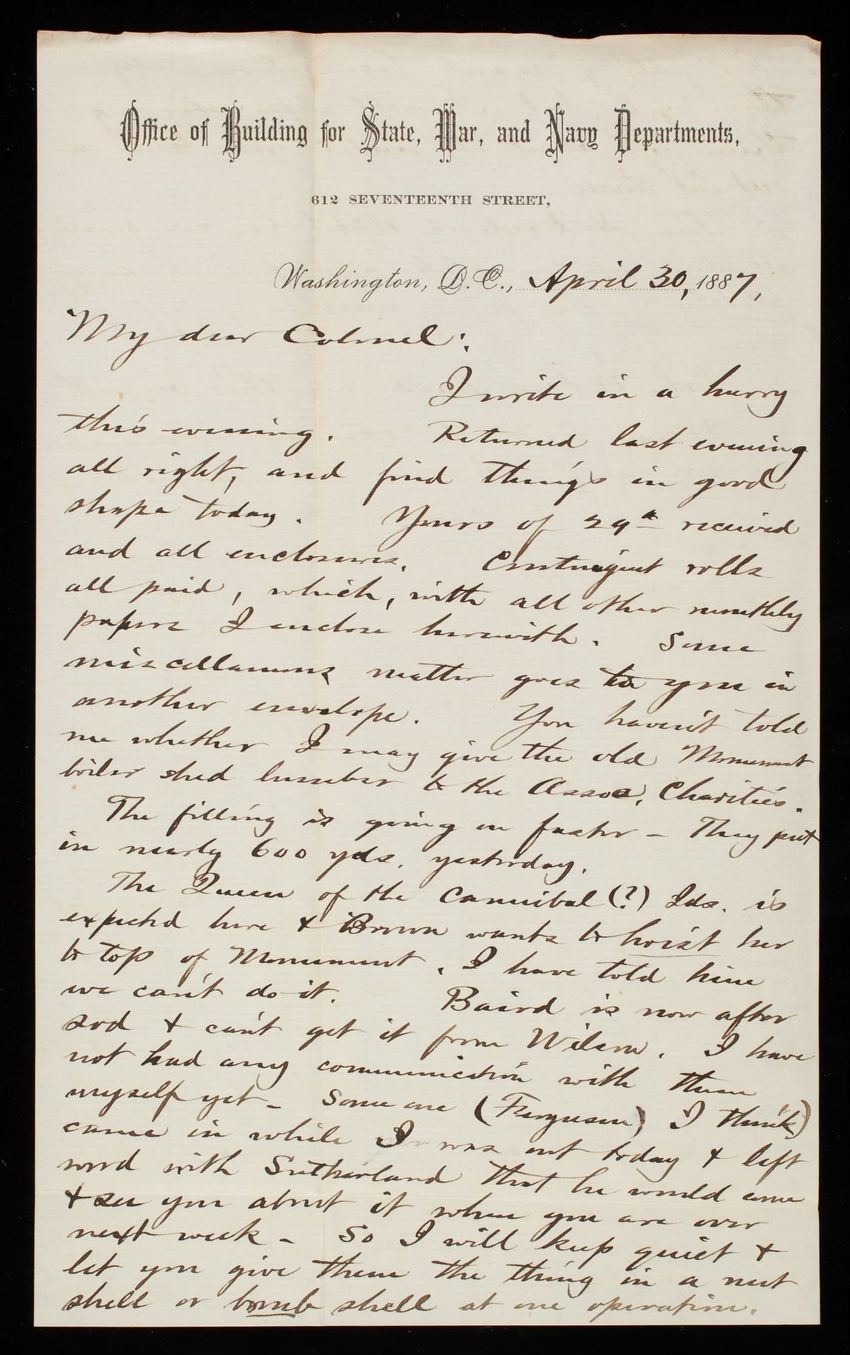 Office of Building for State, War, and Navy Departments,
612 SEVENTEENTH STREET,
Washington, D.C., April 30, 1887,
My dear Colonel:
I write in a hurry
this evening. Returned last evening
all right, and find things in good
shape today. Yours of 29th received
and all enclosures. Contingent rolls
all paid, which, with all other monthly
papers I enclose herewith. Some
miscellaneous matter goes to you in
another envelope. You haven't told
me whether I may give the old Monument
boiler shed lumber to the Assoc. Charities.
The filling is going on faster - They put
in nearly 600 yds. yesterday.
The Queen of the Cannibal (?) Ids. is
expected here & Brown wants to hoist her
to top of Monument. I have told him
we can't do it. Baird is now after
sod & can't get it from Wilson. I have
not had any communication with them
myself yet - Some one (Ferguson, I think)
came in while I was out today & left
word with Sutherland that he would come
& see you about it when you are over
next week - So I will keep quiet &
let you give them the thing in a nut
shell or bomb shell at one operation.